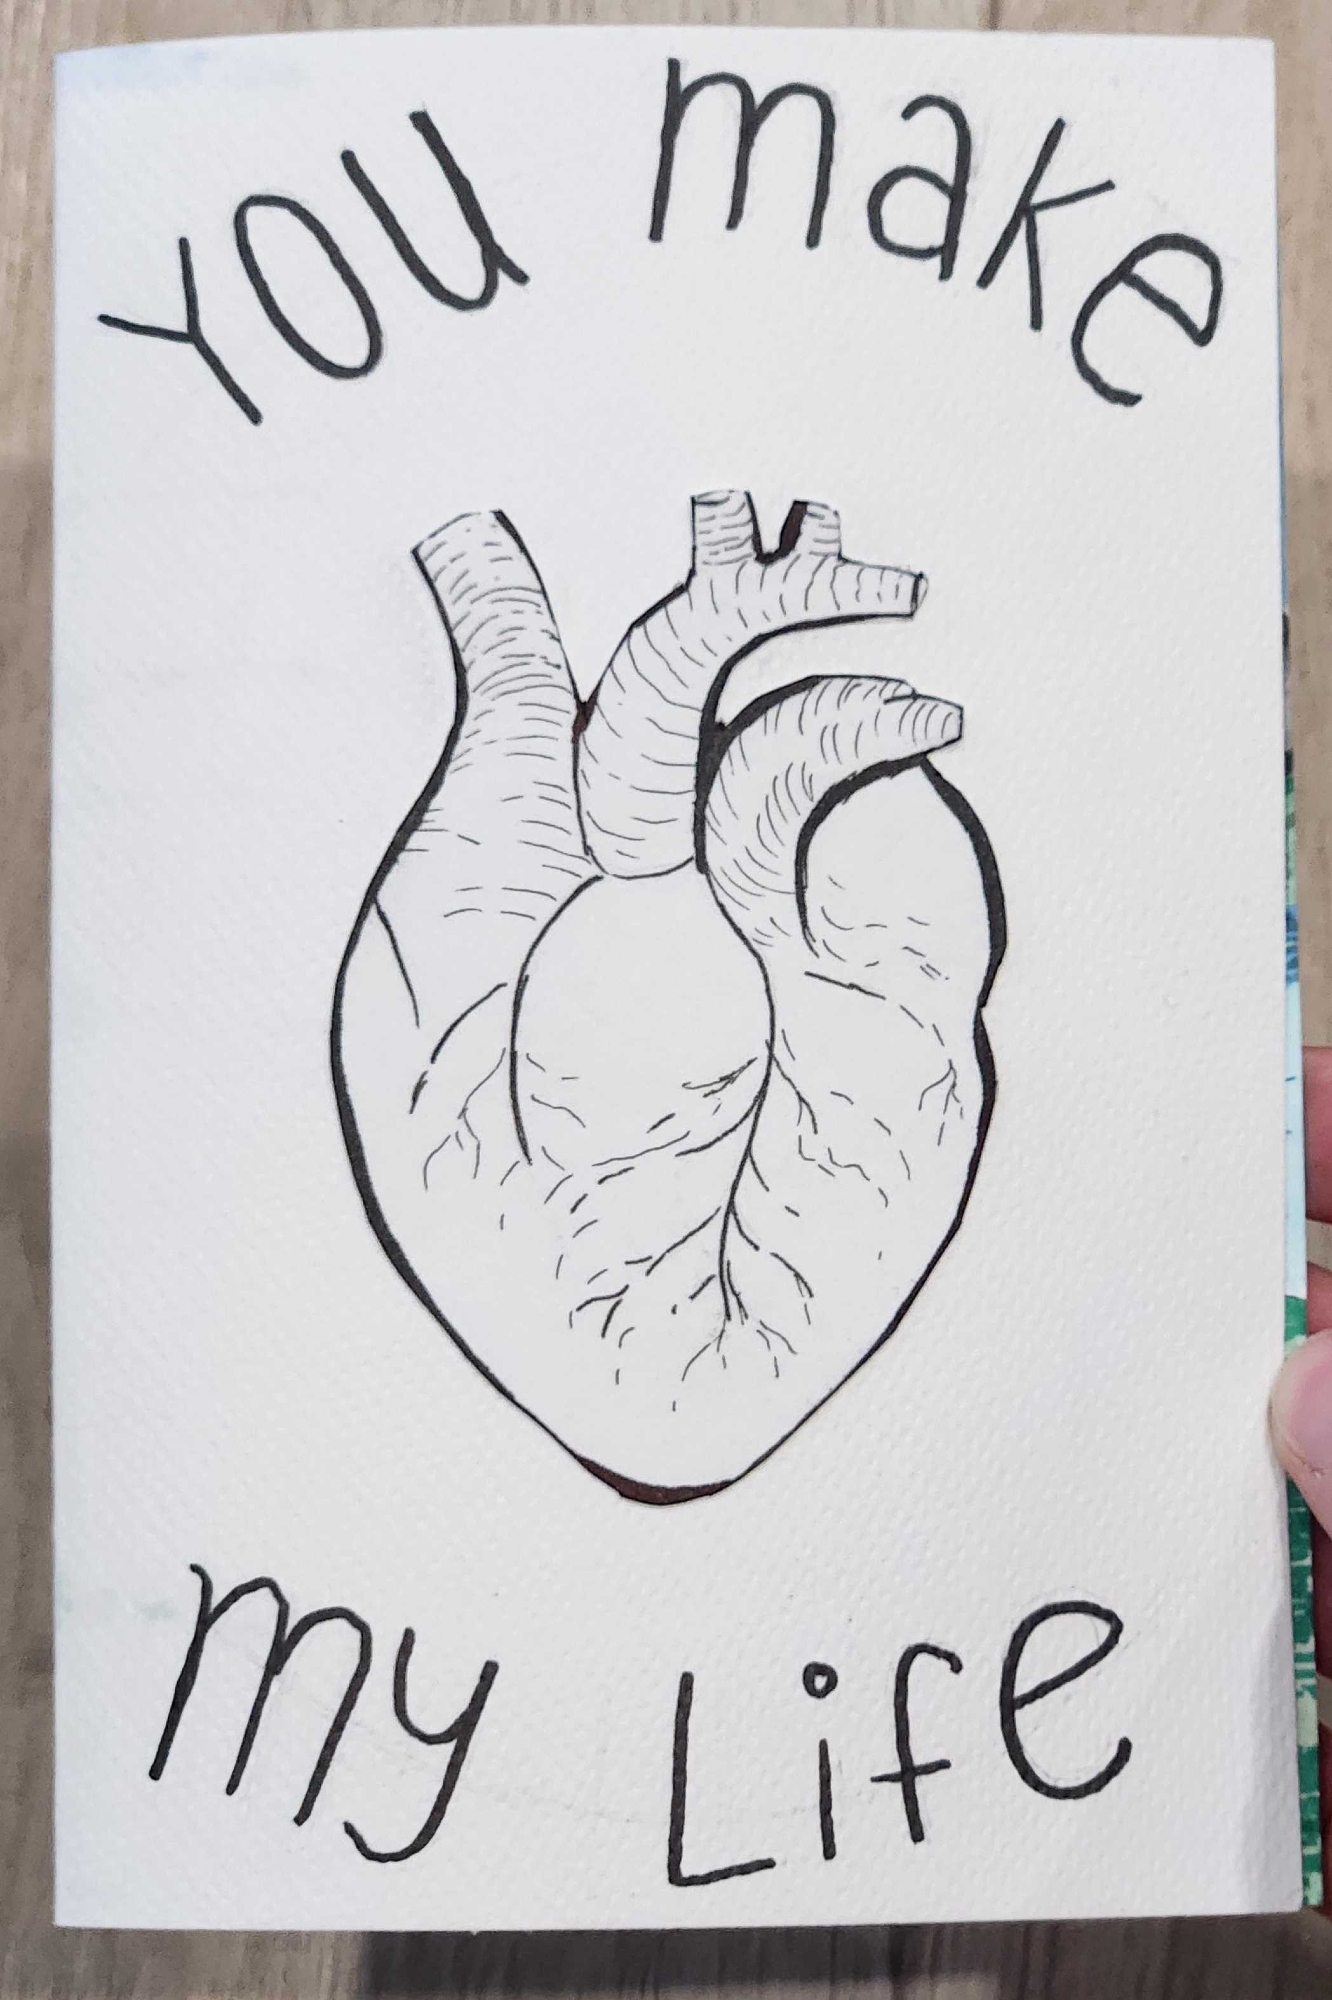 You make
my Life